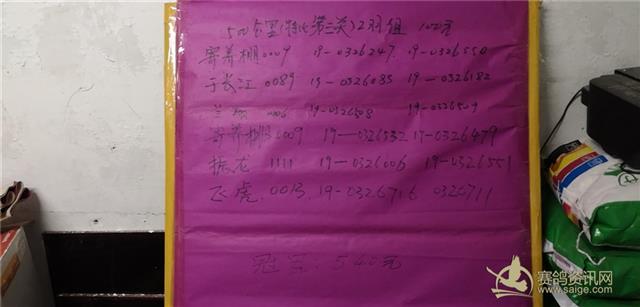 500公里(特比第二关)2羽组 100元
寄养棚0009 19-0326247. 19-0326550
于长江 0089 19-0326085 19-0326182
兰翔 0006 19-0326508 19-0326509
寄养棚0009 19-0326532 17-0326479
振龙 1111 19-0326006 19-0326551
飞虎. 0013. 19-0326716 0326711
冠军 540元
赛鸽资讯网
www.saige.com